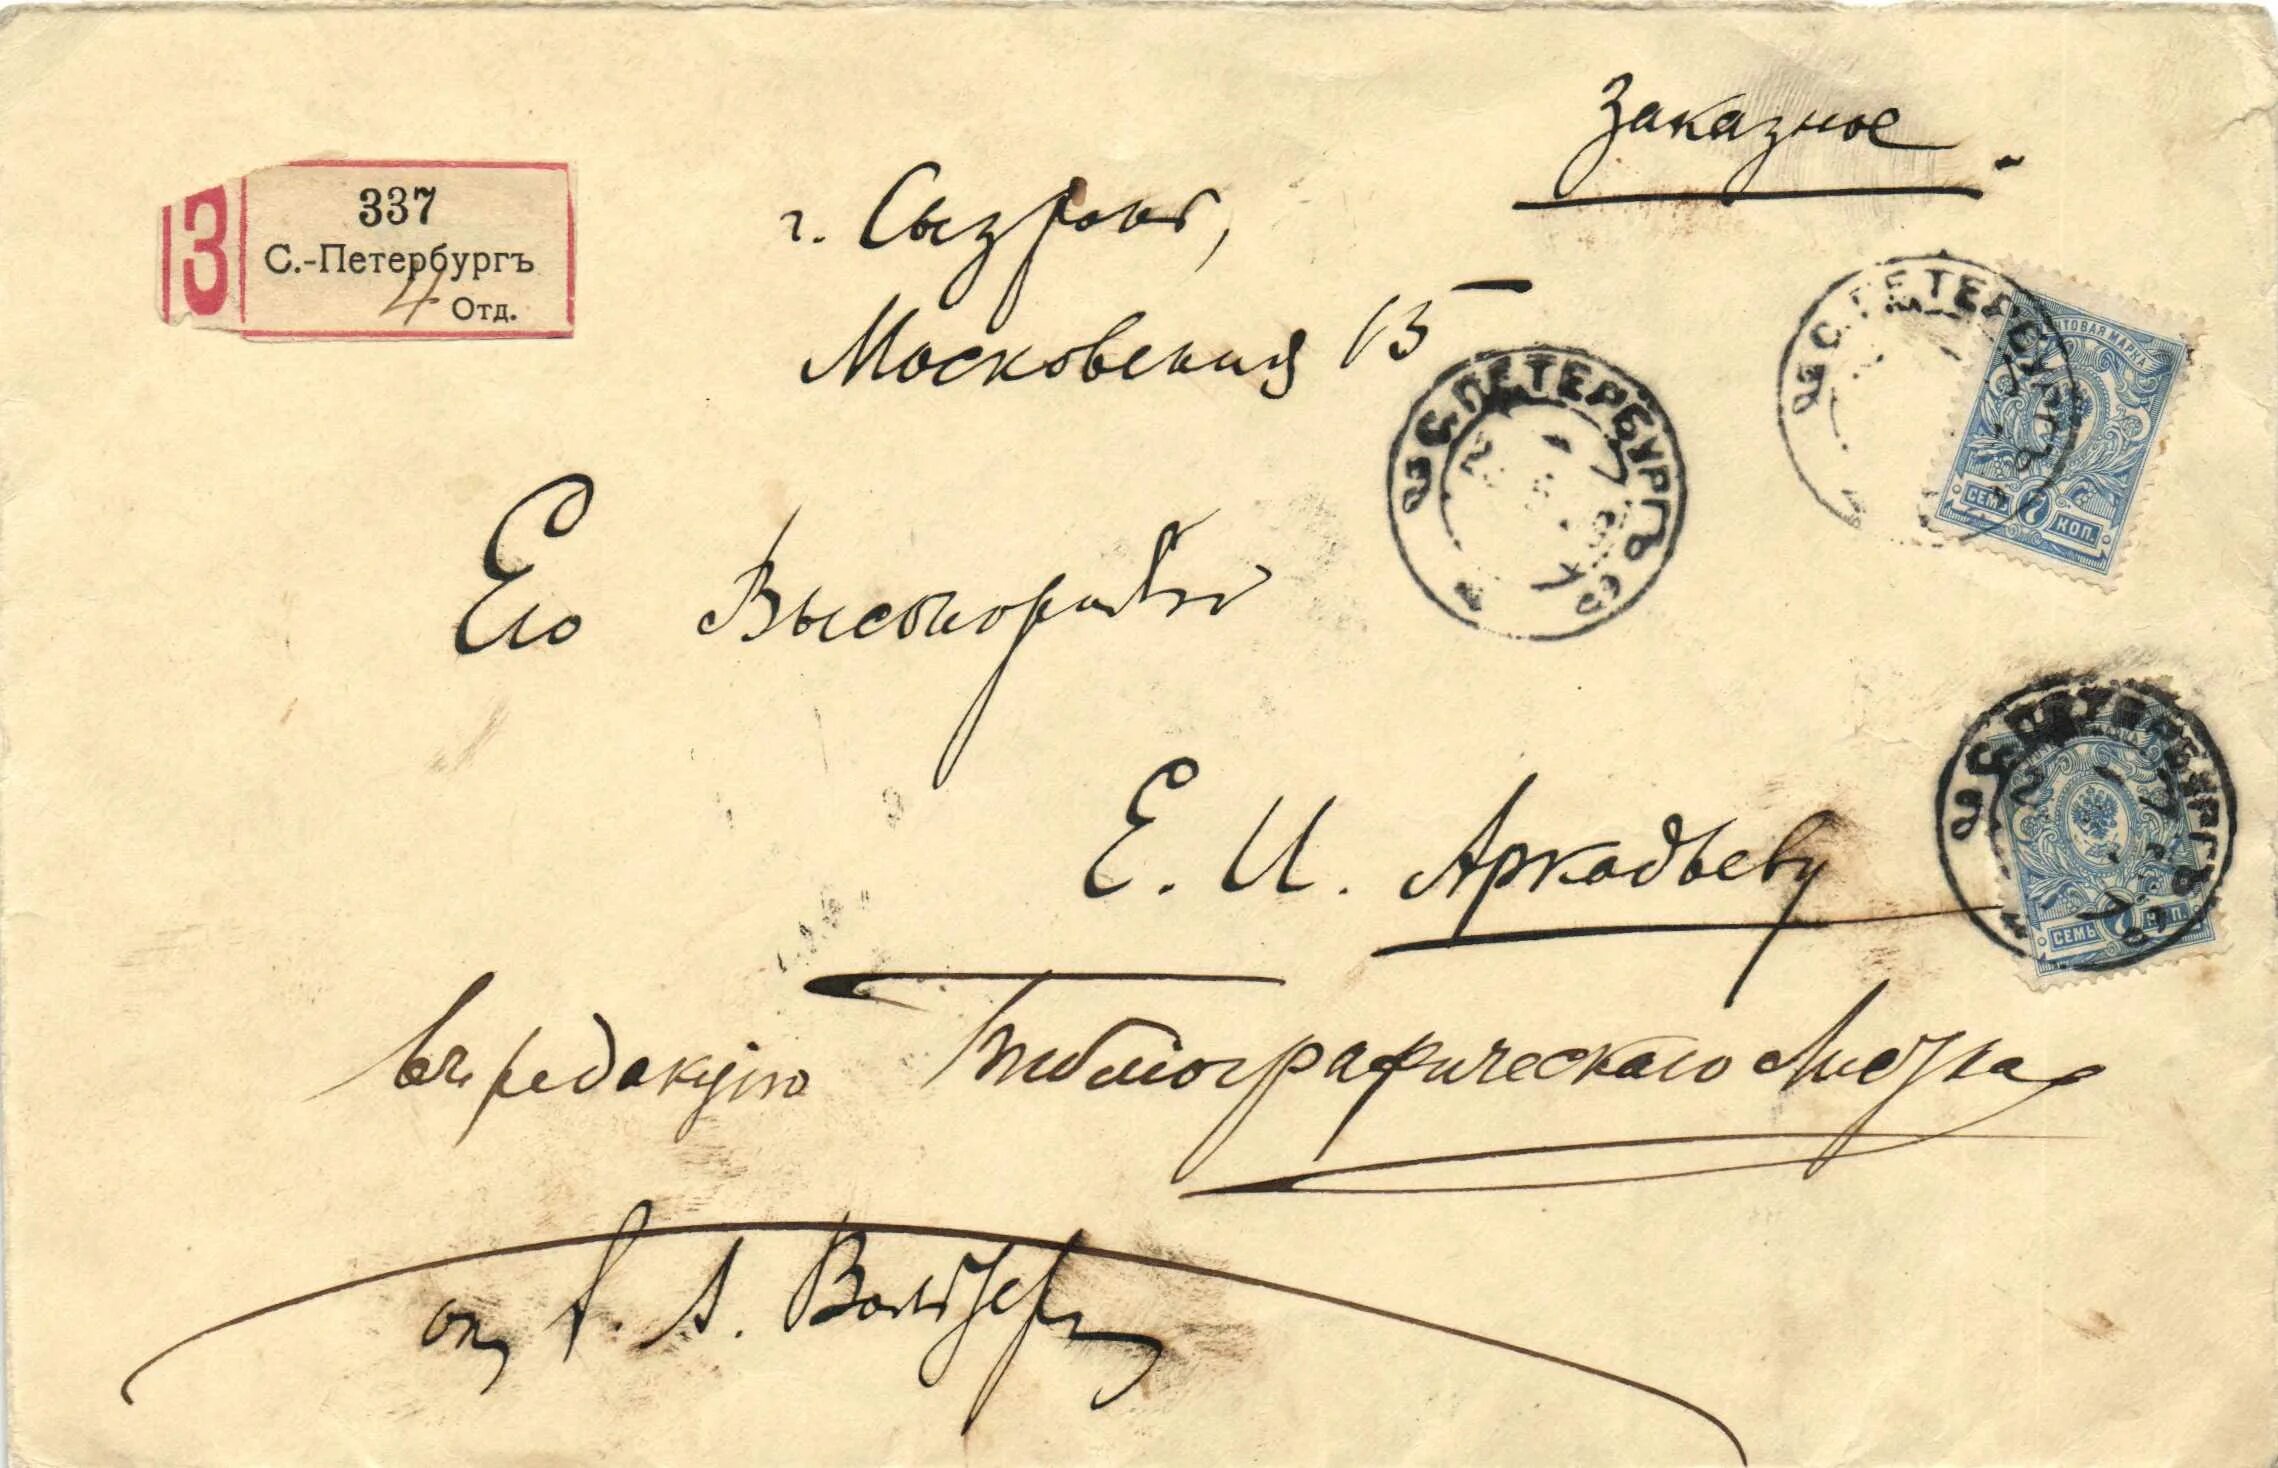 Заказное.
З
337
С.-Петербургъ
4 Отд.
г. Сызрань,
Московская 13
С. ПЕТЕРБУРГЪ
С. ПЕТЕРБУРГЪ
ПОЧТОВАЯ МАРКА
СЕМЬ 7 КОП.
Его Высокородiю
Е. И. Аркадьеву
С. ПЕТЕРБУРГЪ
СЕМЬ 7 КОП.
въ редакцiю Библiографическаго Листка
отъ А. Вольтера